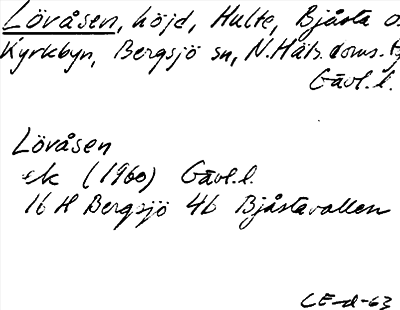 Lövåsen, höjd, Hulte, Bjåsta o.
Kyrkbyn, Bergsjö sn, N. Häls. doms.
Gävl. l.
Lövåsen
ek (1960) Gävl. l.
16 H Bergsjö 4b Bjåstavallen
CE-d-63